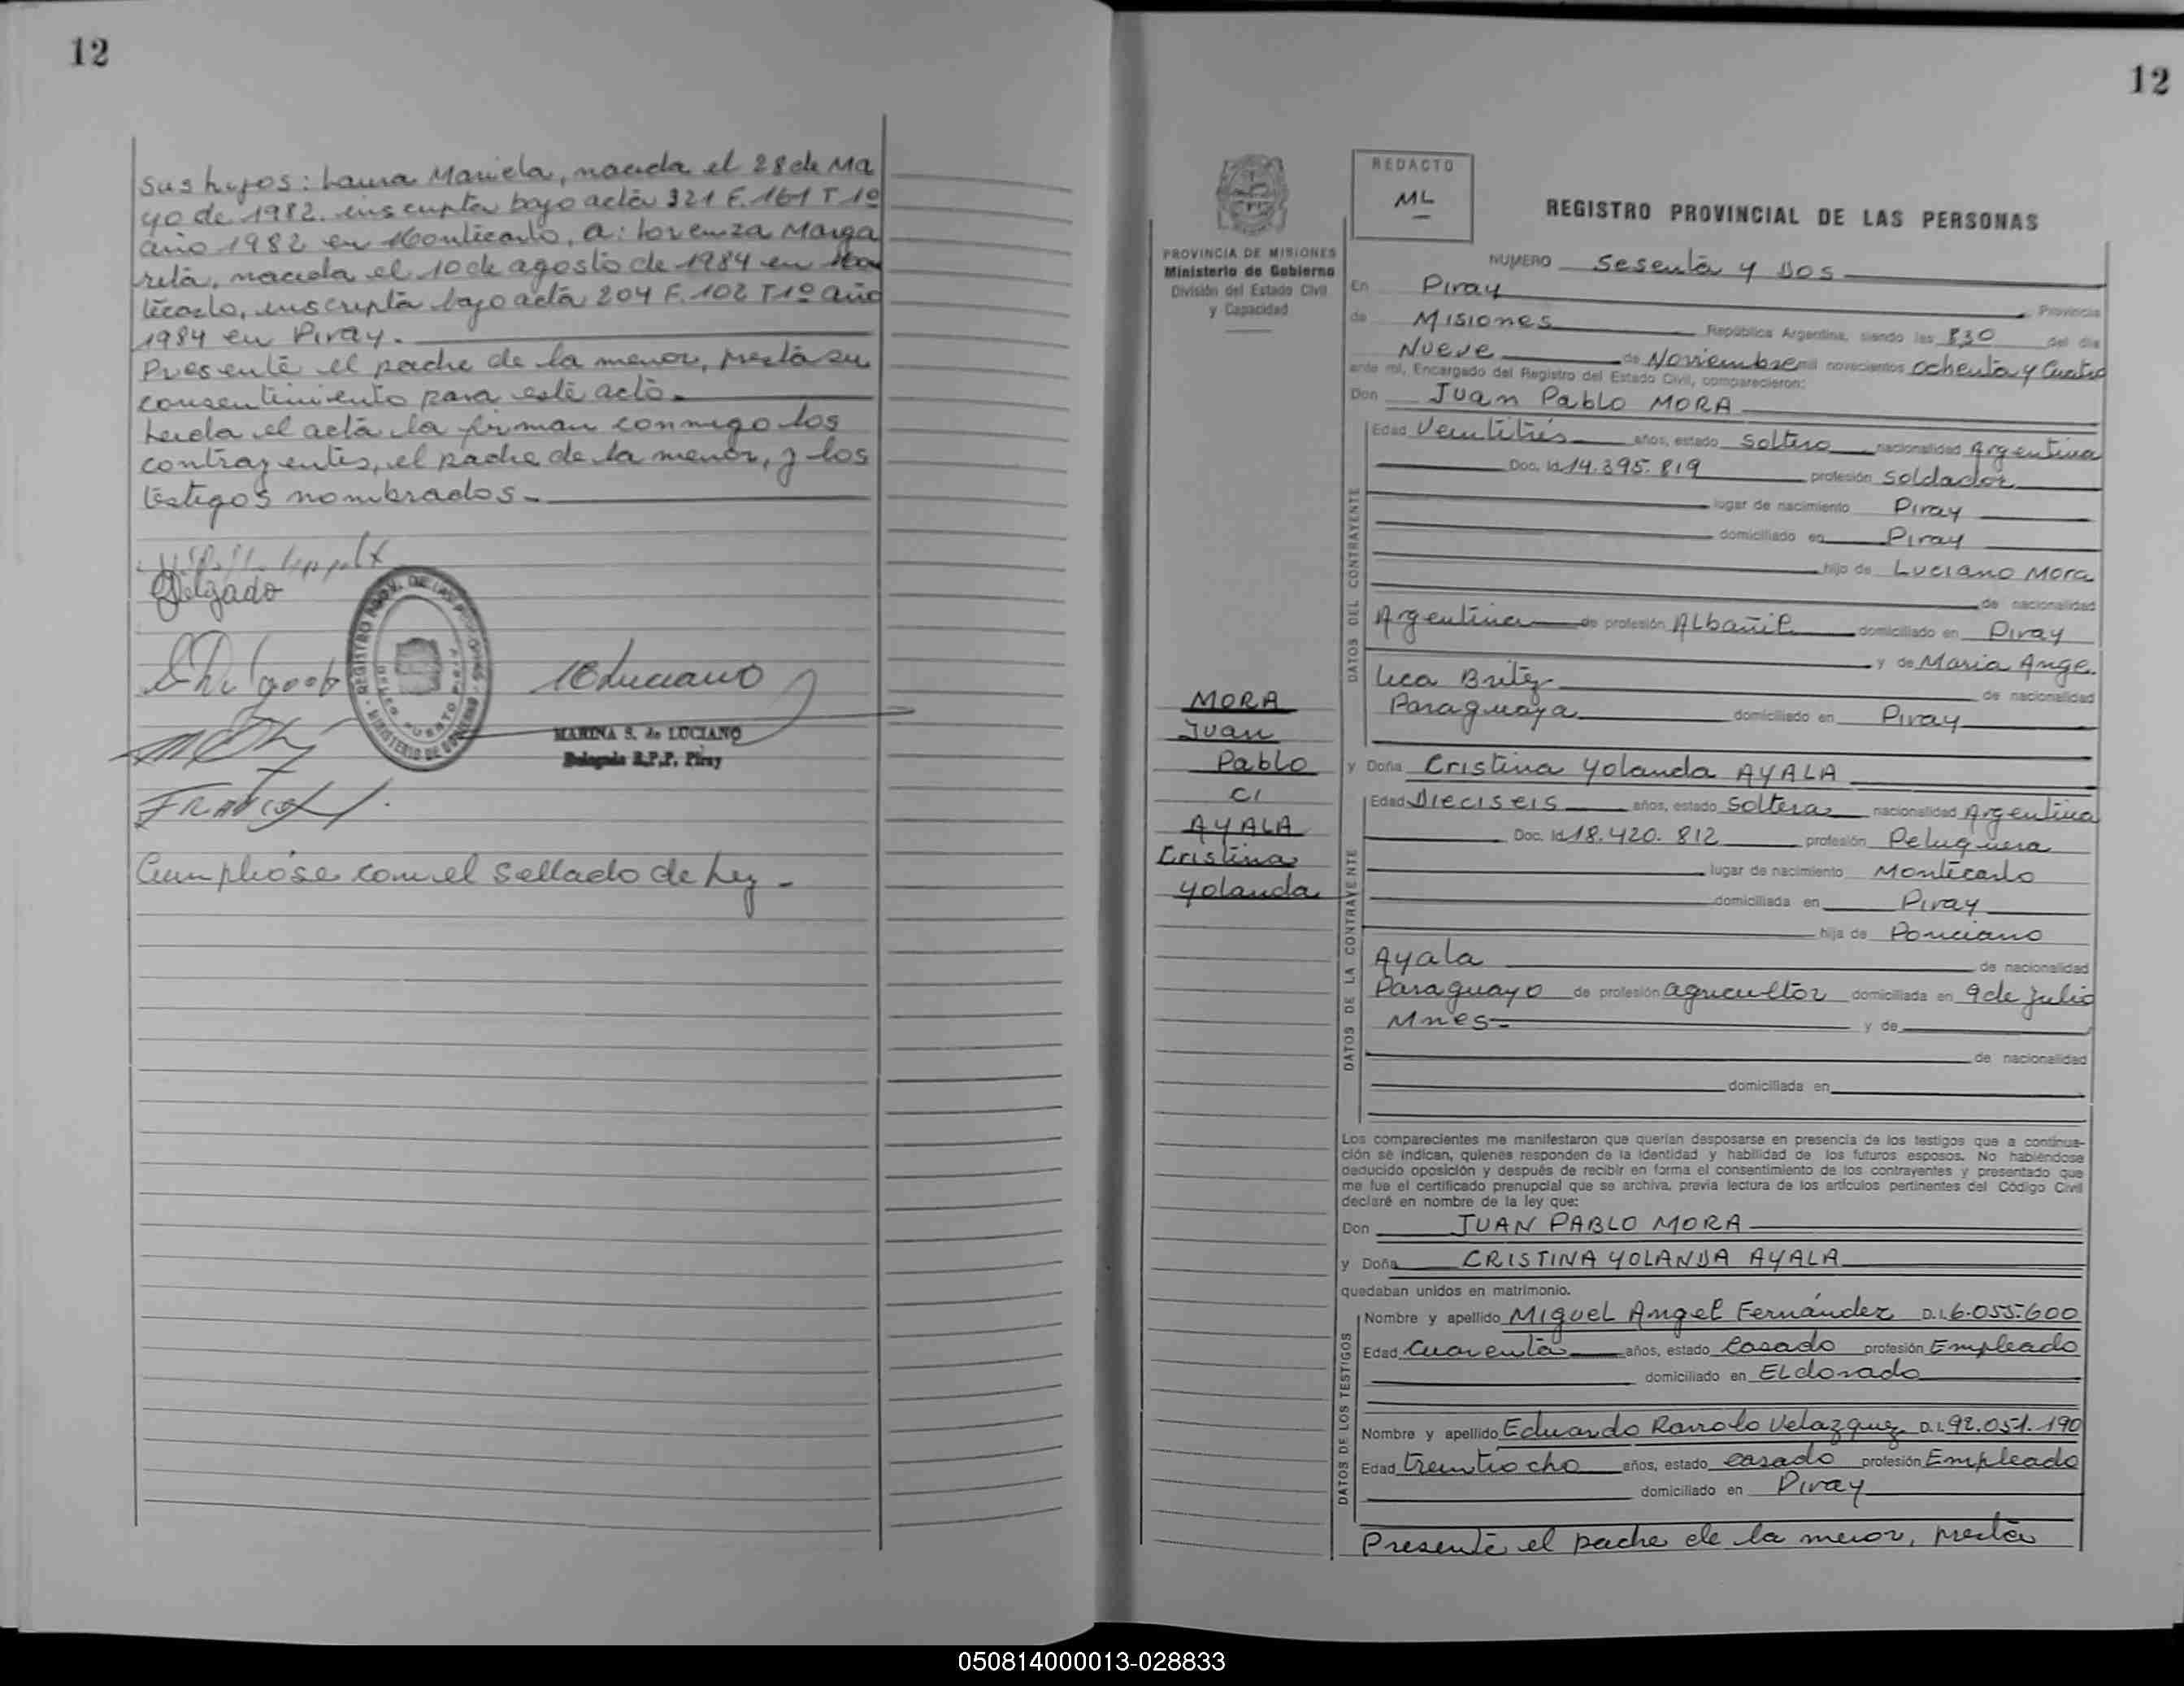 12
sus hijos: Laura Mariela, nacida el 28 de Ma
yo de 1982. inscripta bajo acta 321 F. 161 T 1º
año 1982 en Montecarlo, a: Lorenza Marga
rita, nacida el 10 de agosto de 1984 en Mon
tecarlo, inscripta bajo acta 204 F. 102 T 1º año
1984 en Piray.
Presente el padre de la menor, presta su
consentimiento para este acto.
Leida el acta la firman conmigo los
contrayentes, el padre de la menor, y los
testigos nombrados.
Delgado
MLuciano
MARINA S. de LUCIANO
Delegada R.P.P. Piray
Cumpliose con el Sellado de Ley -
12
PROVINCIA DE MISIONES
Ministerio de Gobierno
División del Estado Civil
y Capacidad
REDACTO
ML
REGISTRO PROVINCIAL DE LAS PERSONAS
NUMERO Sesenta y Dos
En Piray Provincia
de Misiones República Argentina, siendo las 830 del día
Nueve de Noviembre mil novecientos ochenta y Cuatro
ante mí, Encargado del Registro del Estado Civil, comparecieron:
Don Juan Pablo MORA
Edad Veintitrés años, estado Soltero nacionalidad Argentina
Doc. Id 14.395.819 profesión Soldador
lugar de nacimiento Piray
domiciliado en Piray
hijo de Luciano Mora
de nacionalidad
Argentina de profesión Albañil domiciliado en Piray
y de Maria Ange.
lica Britez de nacionalidad
Paraguaya domiciliado en Piray
DATOS DEL CONTRAYENTE
MORA
Juan
Pablo
c/
AYALA
Cristina
Yolanda
y Doña Cristina Yolanda AYALA
Edad Dieciseis años, estado Soltera nacionalidad Argentina
Doc. Id 18.420.812 profesión Peluquera
lugar de nacimiento Montecarlo
domiciliada en Piray
hija de Ponciano
Ayala de nacionalidad
Paraguayo de profesión agricultor domiciliada en 9 de Julio
Mnes- y de
de nacionalidad
domiciliada en
DATOS DE LA CONTRAYENTE
Los comparecientes me manifestaron que querían desposarse en presencia de los testigos que a continua-
ción se indican, quienes responden de la identidad y habilidad de los futuros esposos. No habiéndose
deducido oposición y después de recibir en forma el consentimiento de los contrayentes y presentado que
me fue el certificado prenupcial que se archiva, previa lectura de los artículos pertinentes del Código Civil
declaré en nombre de la ley que:
Don JUAN PABLO MORA
y Doña CRISTINA YOLANDA AYALA
quedaban unidos en matrimonio.
Nombre y apellido Miguel Angel Fernández D.I. 6.055.600
Edad Cuarenta años, estado Casado profesión Empleado
domiciliado en Eldorado
Nombre y apellido Eduardo Velazquez D.I. 92.051.190
Edad treintiocho años, estado casado profesión Empleado
domiciliado en Piray
DATOS DE LOS TESTIGOS
Presente el padre de la menor, presta
050814000013-028833